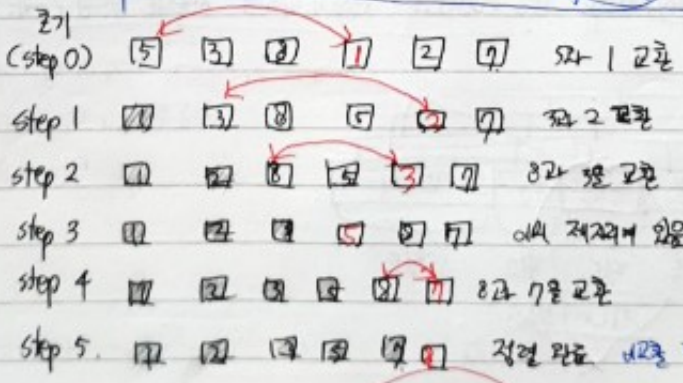 초기
(step 0) 5 3 8 1 2 7 5와 1 교환
step 1 1 3 8 5 2 7 3과 2 교환
step 2 1 2 8 5 3 7 8과 3을 교환
step 3 1 2 3 5 8 7 이미 제자리에 있음
step 4 1 2 3 5 8 7 8과 7을 교환
step 5. 1 2 5 7 8 정렬 완료